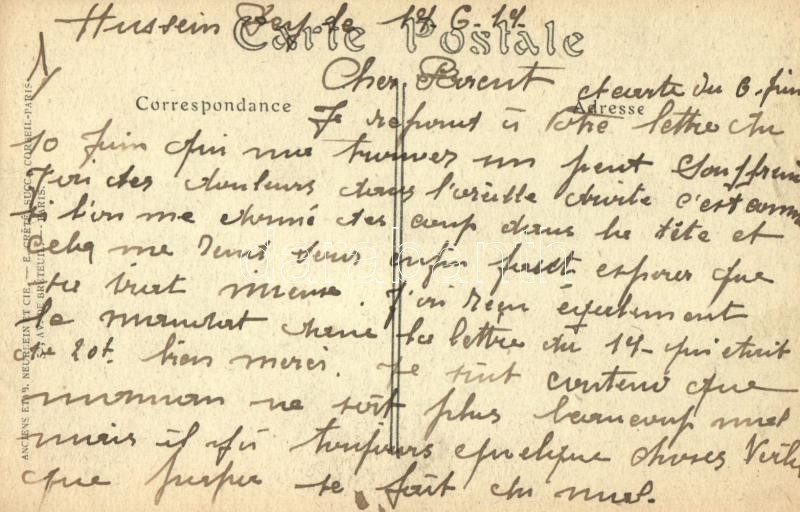 Hussein Dey le 18. 6. 18.
Carte Postale
Cher Parent
Correspondance
Adresse
et carte du 6. juin
Je repond a votre lettre du
10 Juin qui me trouver un peut Souffrant
J'ai des douleurs dans l'oreille droite c'est comme
si l'on me donné des coup dans la tête et
cela me rend enfin faut esperer que
se irat mieux. J'ai reçu également
le mandat dans la lettre du 14- qui etait
de 20f. bien merci. Je suit contend que
maman ne soit plus beaucoup mal
mais il y a toujours quelque choses
que se fait du mal.
ANCIENS ETAB. NEURDEIN ET CIE. — E. CRÉTÉ, SUCC. CORBEIL-PARIS
AV. DE BRETEUIL — PARIS.